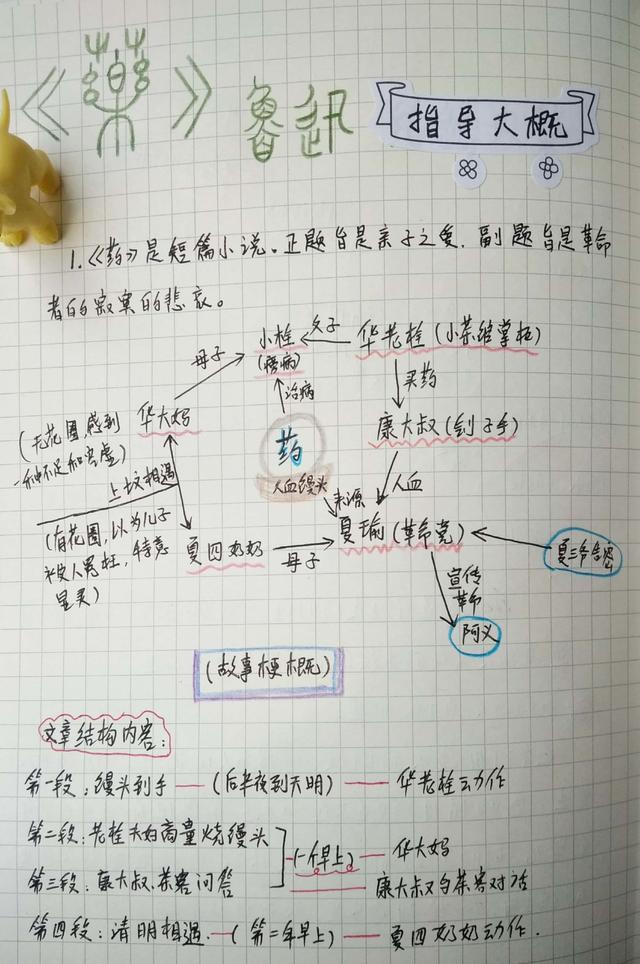 《藥》 魯迅 指导大概
1.《药》是短篇小说。正题旨是亲子之爱,副题旨是革命
者的寂寞的悲哀。
小栓 父子 华老栓(小茶馆掌柜)
母子 (痨病)
治病 买药
(无花圈感到 华大妈 康大叔(刽子手)
一种不足和空虚) 药
上坟相遇 人血馒头 来源 人血
(有花圈,以为儿子 夏四奶奶 母子 夏瑜(革命党) 夏三爷告密
被人冤枉,特意
显灵) 宣传
革命
阿义
(故事梗概)
文章结构内容:
第一段:馒头到手 (后半夜到天明) 华老栓动作
第二段:老栓夫妇商量烧馒头
(一个早上) 华大妈
第三段:康大叔、茶客问答 康大叔与茶客对话
第四段:清明相遇 (第二年早上) 夏四奶奶动作.